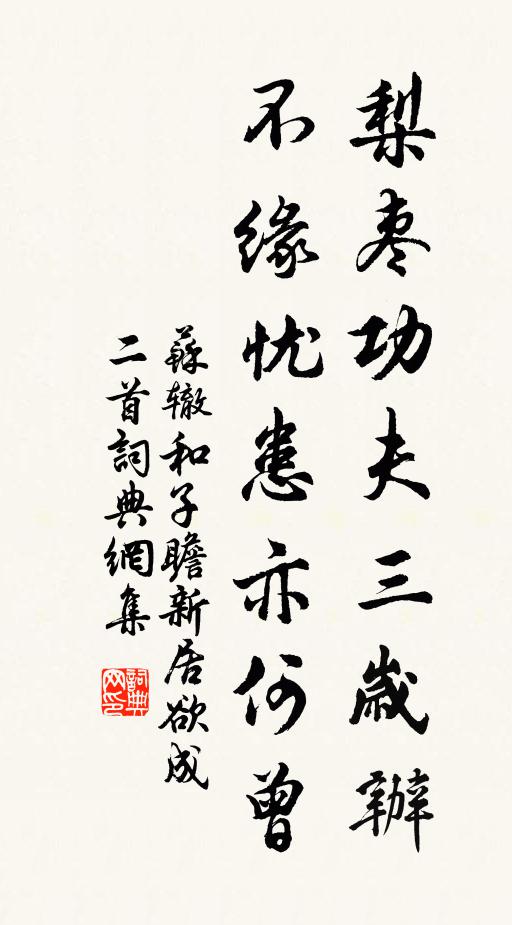 梨枣功夫三岁辦
不缘忧患亦何曾
蘇辙和子瞻新居欲成
二首詞典網集
詞典
网印